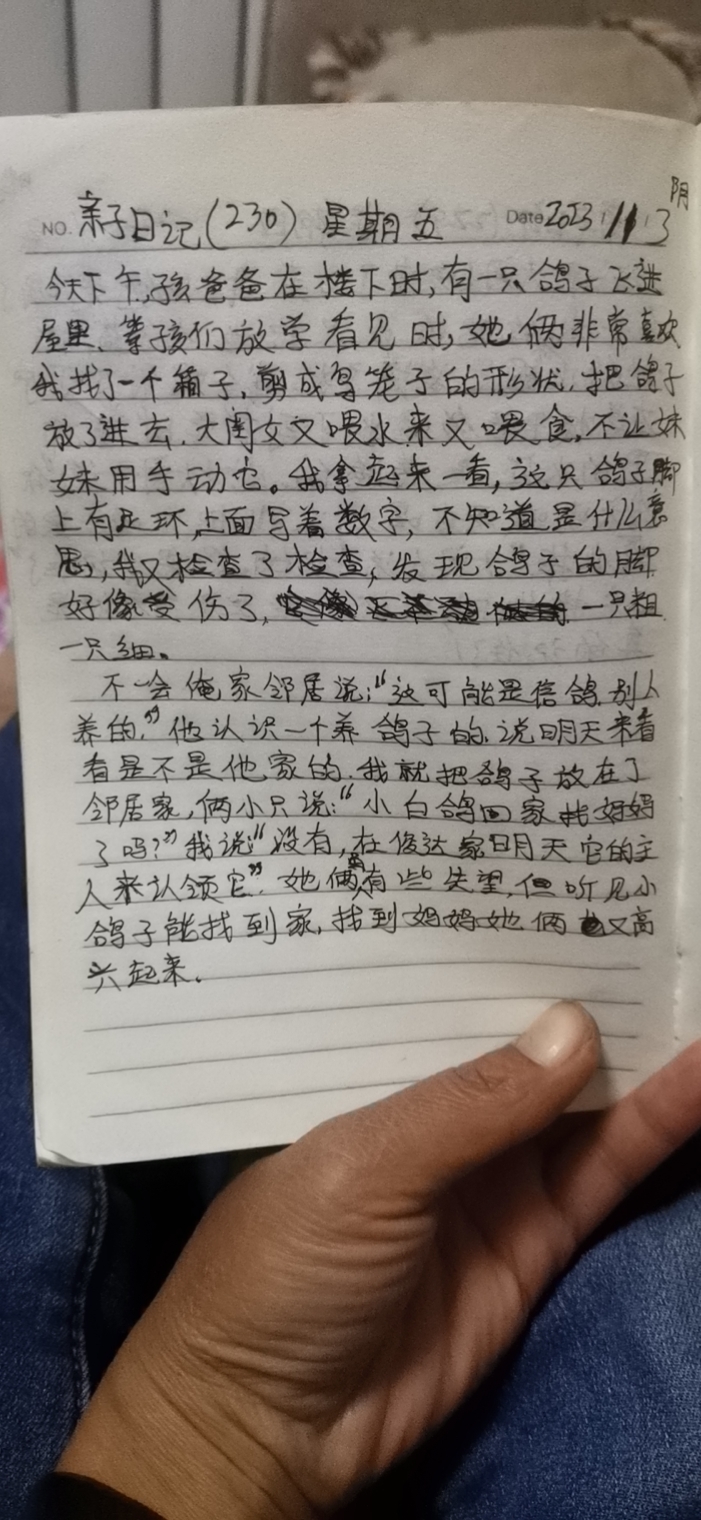 阴
NO. 亲子日记(230) 星期五 Date 2023/11/3
今天下午,孩爸爸在楼下时,有一只鸽子飞进
屋里、等孩们放学看见时,她俩非常喜欢
我找了一个箱子,剪成鸟笼子的形状,把鸽子
放了进去.大闺女又喂水来又喂食,不让妹
妹用手动它。我拿起来一看,这只鸽子脚
上有足环,上面写着数字,不知道是什么意
思,我又检查了检查,发现鸽子的脚
好像受伤了, 一只粗
一只细。
不一会俺家邻居说:"这可能是信鸽.别人
养的."他认识一个养鸽子的.说明天来看
看是不是他家的.我就把鸽子放在了
邻居家,俩小只说:"小白鸽回家找妈妈
了吗?"我说:"没有,在俊达家明天它的主
人来认领它".她俩有些失望,但听见小
鸽子能找到家,找到妈妈她俩又高
兴起来.